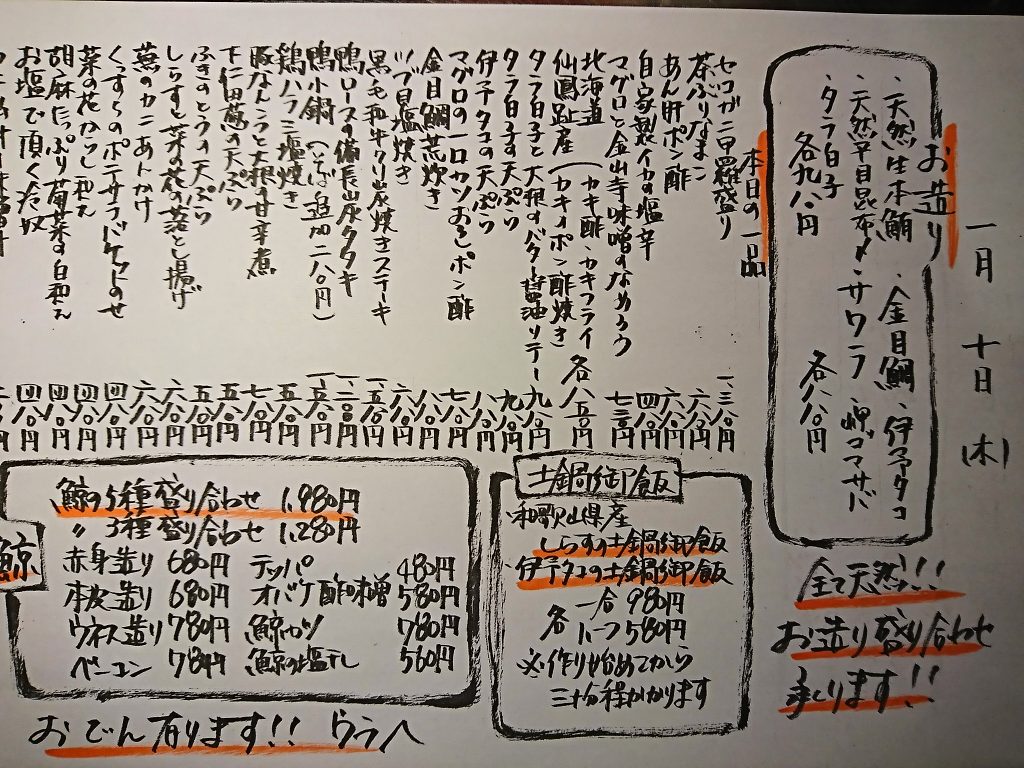 一月 十日 (木)
お造り
・天然生本鮪 ・金目鯛 ・伊予タコ
・天然平目昆布〆 ・サワラ ・岬ゴマサバ
各八八〇円
・タラ白子
各九八〇円
全て天然!!!
お造り盛り合わせ
承ります!!
本日の一品
セコガニ甲羅盛り 一、三八〇円
茶ぶりなまこ 六八〇円
あん肝ポン酢 六八〇円
自家製イカの塩辛 四八〇円
マグロと金山寺味噌のなめろう 七三〇円
北海道
仙鳳趾産 (カキ酢・カキフライ
(カキのポン酢焼き) 各八五〇円
タラ白子と大根のバター醤油ソテー 九八〇円
タラ白子の天ぷら 九八〇円
伊予タコの天ぷら 八八〇円
マグロの一口カツおろしポン酢 七八〇円
金目鯛荒炊き 八八〇円
ツブ貝塩焼き 六八〇円
黒毛和牛クリ炭焼きステーキ 一、五八〇円
鴨ロースの備長山原タタキ 一、二八〇円
鴨小鍋 (そば追加二八〇円) 一、五八〇円
鶏ハラミ塩焼き 五八〇円
豚なんこつと大根の甘辛煮 七八〇円
下仁田葱の天ぷら 五八〇円
ふきのとうの天ぷら 五八〇円
しらすと菜の花の落とし揚げ 六八〇円
蕪のカニあんかけ 六八〇円
くずし ポテサラバゲットのせ 四八〇円
菜の花からし和え 四八〇円
胡麻たっぷり菊菜の白和え 四八〇円
お塩で頂く冷奴 四八〇円
土鍋御飯
・和歌山県産
しらすの土鍋御飯
・伊予タコの土鍋御飯
各 一合 980円
ハーフ 580円
※作り始めてから
三十分程かかります
鯨
鯨の5種盛り合わせ 1,980円
〃 3種盛り合わせ 1,280円
赤身造り 680円 テッパ 480円
本皮造り 680円 オバケ酢味噌 580円
ウネス造り 780円 鯨カツ 780円
ベーコン 780円 鯨の塩干し 560円
おでん有ります!! ウラへ